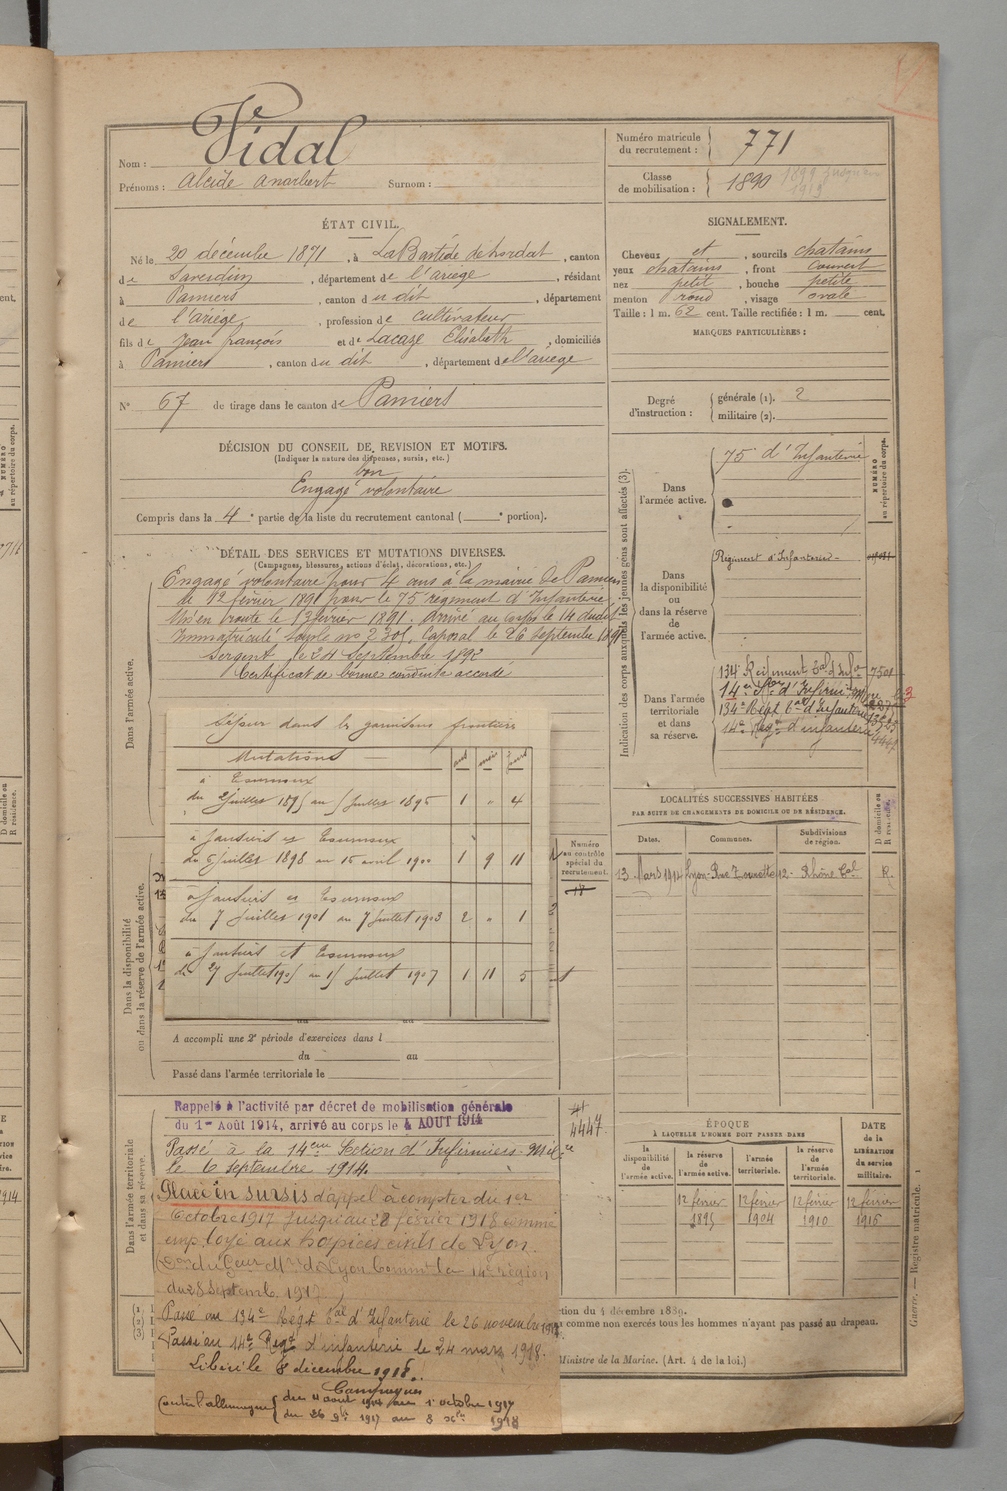 Nom : Vidal
Prénoms : Alcide Surnom :
Numéro matricule du recrutement : 771
Classe de mobilisation : 1890
ÉTAT CIVIL.
Né le 20 décembre 1871, à La Bastide de Lordat, canton
de Saverdun, département de l'ariège, résidant
à Pamiers, canton du dit, département
de l'ariége, profession de cultivateur
fils de Jean françois et de Lacaze Elisabeth, domiciliés
à Pamiers, canton du dit, département de l'ariege
N° 67 de tirage dans le canton de Pamiers
SIGNALEMENT.
Cheveux et, sourcils chatains
yeux chatains, front couvert
nez petit, bouche petite
menton rond, visage ovale
Taille : 1 m. 62 cent. Taille rectifiée : 1 m. cent.
MARQUES PARTICULIÈRES :
Degré d'instruction : générale (1). 2
militaire (2).
DÉCISION DU CONSEIL DE REVISION ET MOTIFS.
(Indiquer la nature des dispenses, sursis, etc.)
bon
Engagé volontaire
Compris dans la 4e partie de la liste du recrutement cantonal ( e portion).
DÉTAIL DES SERVICES ET MUTATIONS DIVERSES.
(Campagnes, blessures, actions d'éclat, décorations, etc.)
Dans l'armée active.
Engagé volontaire pour 4 ans à la mairie de Pamiers
le 12 février 1891 pour le 75e régiment d'Infanterie
Mis en route le 13 février 1891. Arrivé au corps le 14 dudit
Immatriculé sous le no 2301. Caporal le 26 Septembre 1891
Sergent le 24 Septembre 1892
Certificat de bonne conduite accordé
Séjour dans les garnisons frontière
Mutations ans mois jours
à Tournoux
du 2 juillet 1895 au 5 juillet 1896 1 " 4
à Jausiers et Tournoux
du 5 juillet 1898 au 15 avril 1900 1 9 11
à Jausiers et Tournoux
du 7 Juillet 1901 au 7 Juillet 1903 2 " 1
à Jausiers et Tournoux
du 27 Juillet 1905 au 1er Juillet 1907 1 11 5
Dans la disponibilité ou dans la réserve de l'armée active.
Numéro au contrôle spécial du recrutement.
A accompli une 2e période d'exercices dans l
du au
Passé dans l'armée territoriale le
Dans l'armée territoriale et dans sa réserve.
Rappelé à l'activité par décret de mobilisation générale
du 1er Août 1914, arrivé au corps le 4 AOUT 1914
4447
Passé à la 14eme Section d'Infirmiers Milre
le 6 septembre 1914.
Placé en sursis d'appel à compter du 1er
Octobre 1917 jusqu'au 28 février 1918 comme
employé aux hospices civils de Lyon.
du 28 Septembre 1917
Passé au 134e Régt tal d'Infanterie le 26 novembre 1917
Passé au 14e Regt d'infanterie le 24 mars 1918.
Libéré le 8 décembre 1918.
Campagnes
Contre l'allemagne du 4 aout 1914 au 1 octobre 1917
du 26 9bre 1917 au 8 Xbre 1918
Indication des corps auxquels les jeunes gens sont affectés (3).
NUMÉRO au répertoire du corps.
Dans l'armée active.
75e d'Infanterie
Dans la disponibilité ou dans la réserve de l'armée active.
Régiment d'Infanterie
Dans l'armée territoriale et dans sa réserve.
134e Régiment Tal d'Infie 7501
14e Son d'Infirm. Mre
134e Régt tal d'Infanterie
14e Régt d'infanterie 4447
LOCALITÉS SUCCESSIVES HABITÉES
PAR SUITE DE CHANGEMENTS DE DOMICILE OU DE RÉSIDENCE.
Dates. Communes. Subdivisions de région. D domicile ou R résidence.
13 Mars 1914 Lyon - Rue 12 Rhône Cal R.
ÉPOQUE
À LAQUELLE L'HOMME DOIT PASSER DANS
la disponibilité de l'armée active. la réserve de l'armée active. l'armée territoriale. la réserve de l'armée territoriale. DATE de la LIBÉRATION du service militaire.
12 février 1895 12 février 1904 12 février 1910 12 février 1916
ction du 4 décembre 1889.
comme non exercés tous les hommes n'ayant pas passé au drapeau.
Ministre de la Marine. (Art. 4 de la loi.)
Guerre. — Registre matricule. 1